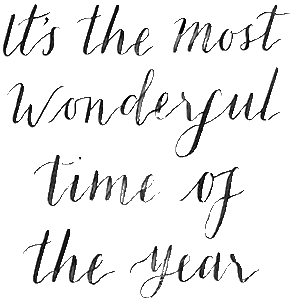 It's the most
wonderful
time of
the year